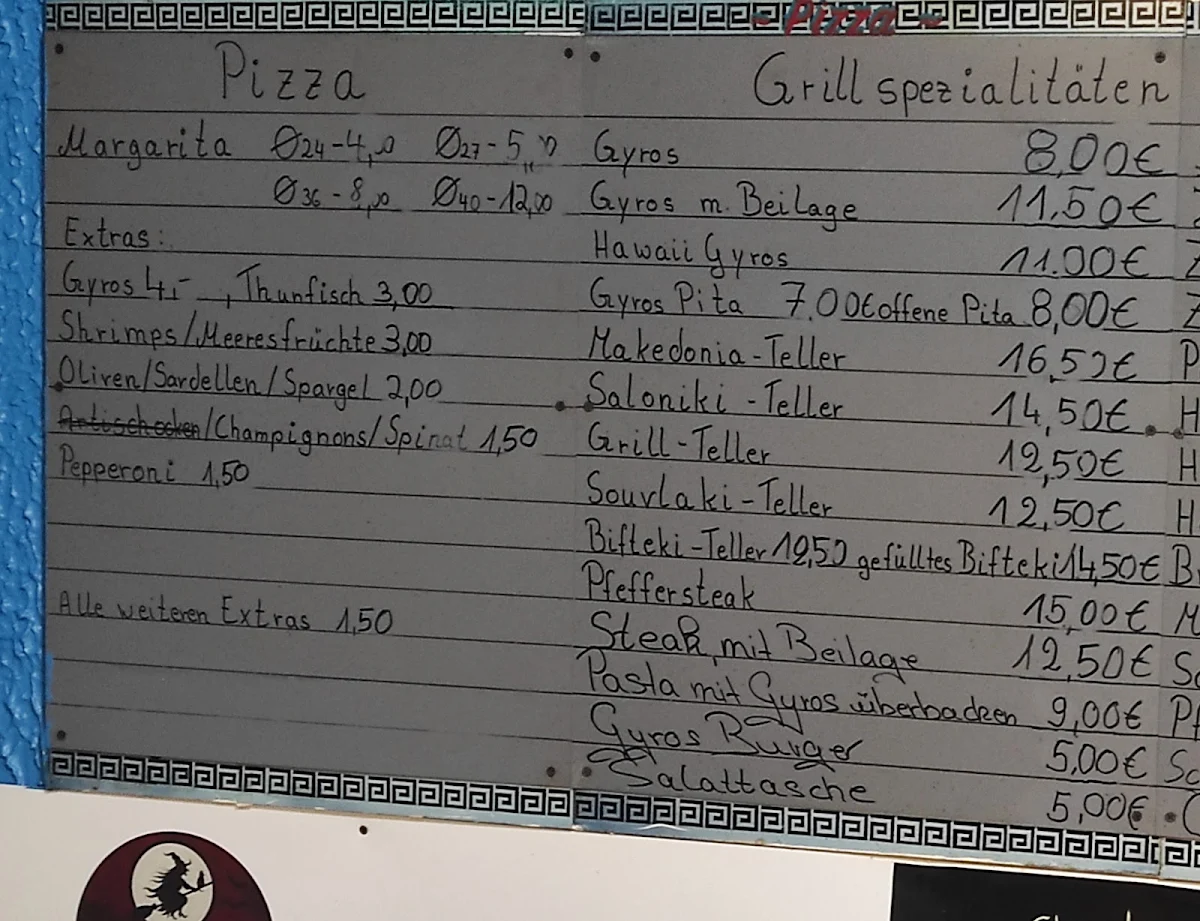 - Pizza -
Pizza
Margarita Ø24-4,00 Ø27-5,00
Ø36-8,00 Ø40-12,00
Extras:
Gyros 4,- , Thunfisch 3,00
Shrimps/Meeresfrüchte 3,00
Oliven/Sardellen/Spargel 2,00
Artischocken/Champignons/Spinat 1,50
Pepperoni 1,50
Alle weiteren Extras 1,50
Grillspezialitäten
Gyros 8,00€
Gyros m. Beilage 11,50€
Hawaii Gyros 11.00€
Gyros Pita 7.00€ offene Pita 8,00€
Makedonia-Teller 16,50€
Saloniki-Teller 14,50€
Grill-Teller 12,50€
Souvlaki-Teller 12,50€
Bifteki-Teller 12,50 gefülltes Bifteki 14,50€
Pfeffersteak 15,00€
Steak mit Beilage 12,50€
Pasta mit Gyros überbacken 9,00€
Gyros Burger 5,00€
Salattasche 5,00€